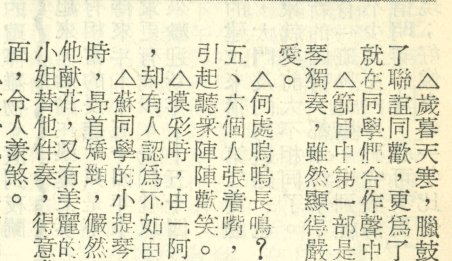 △歲暮天寒，臘鼓
了聯誼同歡，更爲了
就在同學們合作聲中
△節目中第一部是
琴獨奏，雖然顯得嚴
愛。
△何處嗚嗚長鳴？
五、六個人張着嘴，
引起聽衆陣陣歡笑。
△摸彩時，由一阿
，却有人認爲不如由
△蘇同學的小提琴
時，昻首矯頸，儼然
他献花，又有美麗的
小姐替他伴奏，得意
面，令人羨煞。